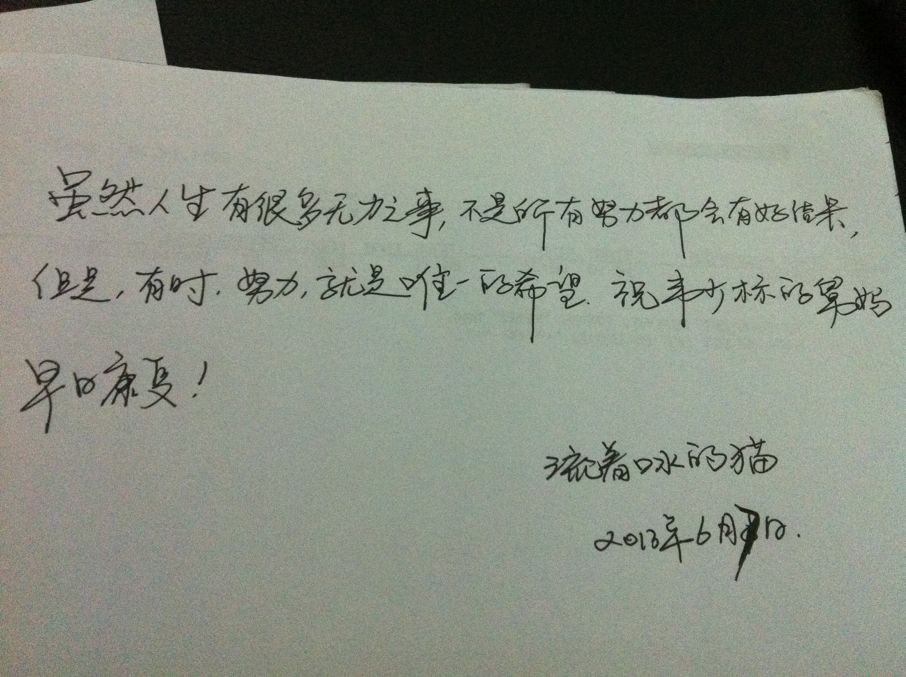 虽然人生有很多无力之事,不是所有努力都会有好结果,
但是,有时,努力,就是唯一的希望.祝韦少标的舅妈
早日康复!
流着口水的猫
2013年6月7日.